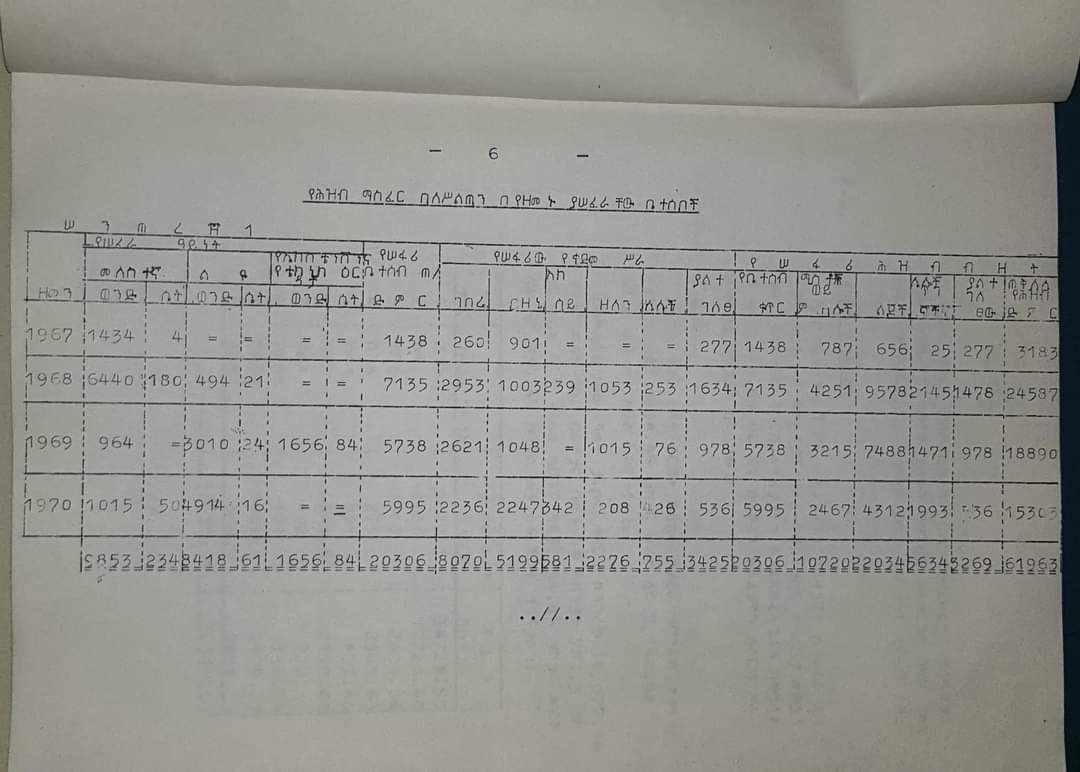 - 6 -
የሕዝብ ማስፈር ባለሥልጣን በየዘመኑ ያሠፈራቸው ቤተሰቦች
ሠንጠረዥ 1
የሠፈራ ዓይነት
የሠፋሪ
የሠፋሪው የቀድሞ ሥራ
የሠፋሪ ሕዝብ ብዛት
መለስተኛ
ልዩ
ቤተሰብ ጠ/
ያልተ
የቤተሰብ
ያልተ
ዘመን ወንድ ሴት ወንድ ሴት ወንድ ሴት ድምር ገበሬ ዘላን ገለፀ ልጆች ድምር
1967 1434 4 = = = = 1438 260 901 = = = 277 1438 787 656 25 277 3183
1968 6440 180 494 21 = = 7135 2953 1003 239 1053 253 1634 7135 4251 9578 2145 1478 24587
1969 964 = 3010 24 1656 84 5738 2621 1048 = 1015 76 978 5738 3215 7488 1471 978 18890
1970 1015 50 4914 16 = = 5995 2236 2247 342 208 426 536 5995 2467 4312 1993 536 15303
9853 234 8418 61 1656 84 20306 8070 5199 581 2276 755 3425 20306 10720 22034 5634 3269 61963
..//..